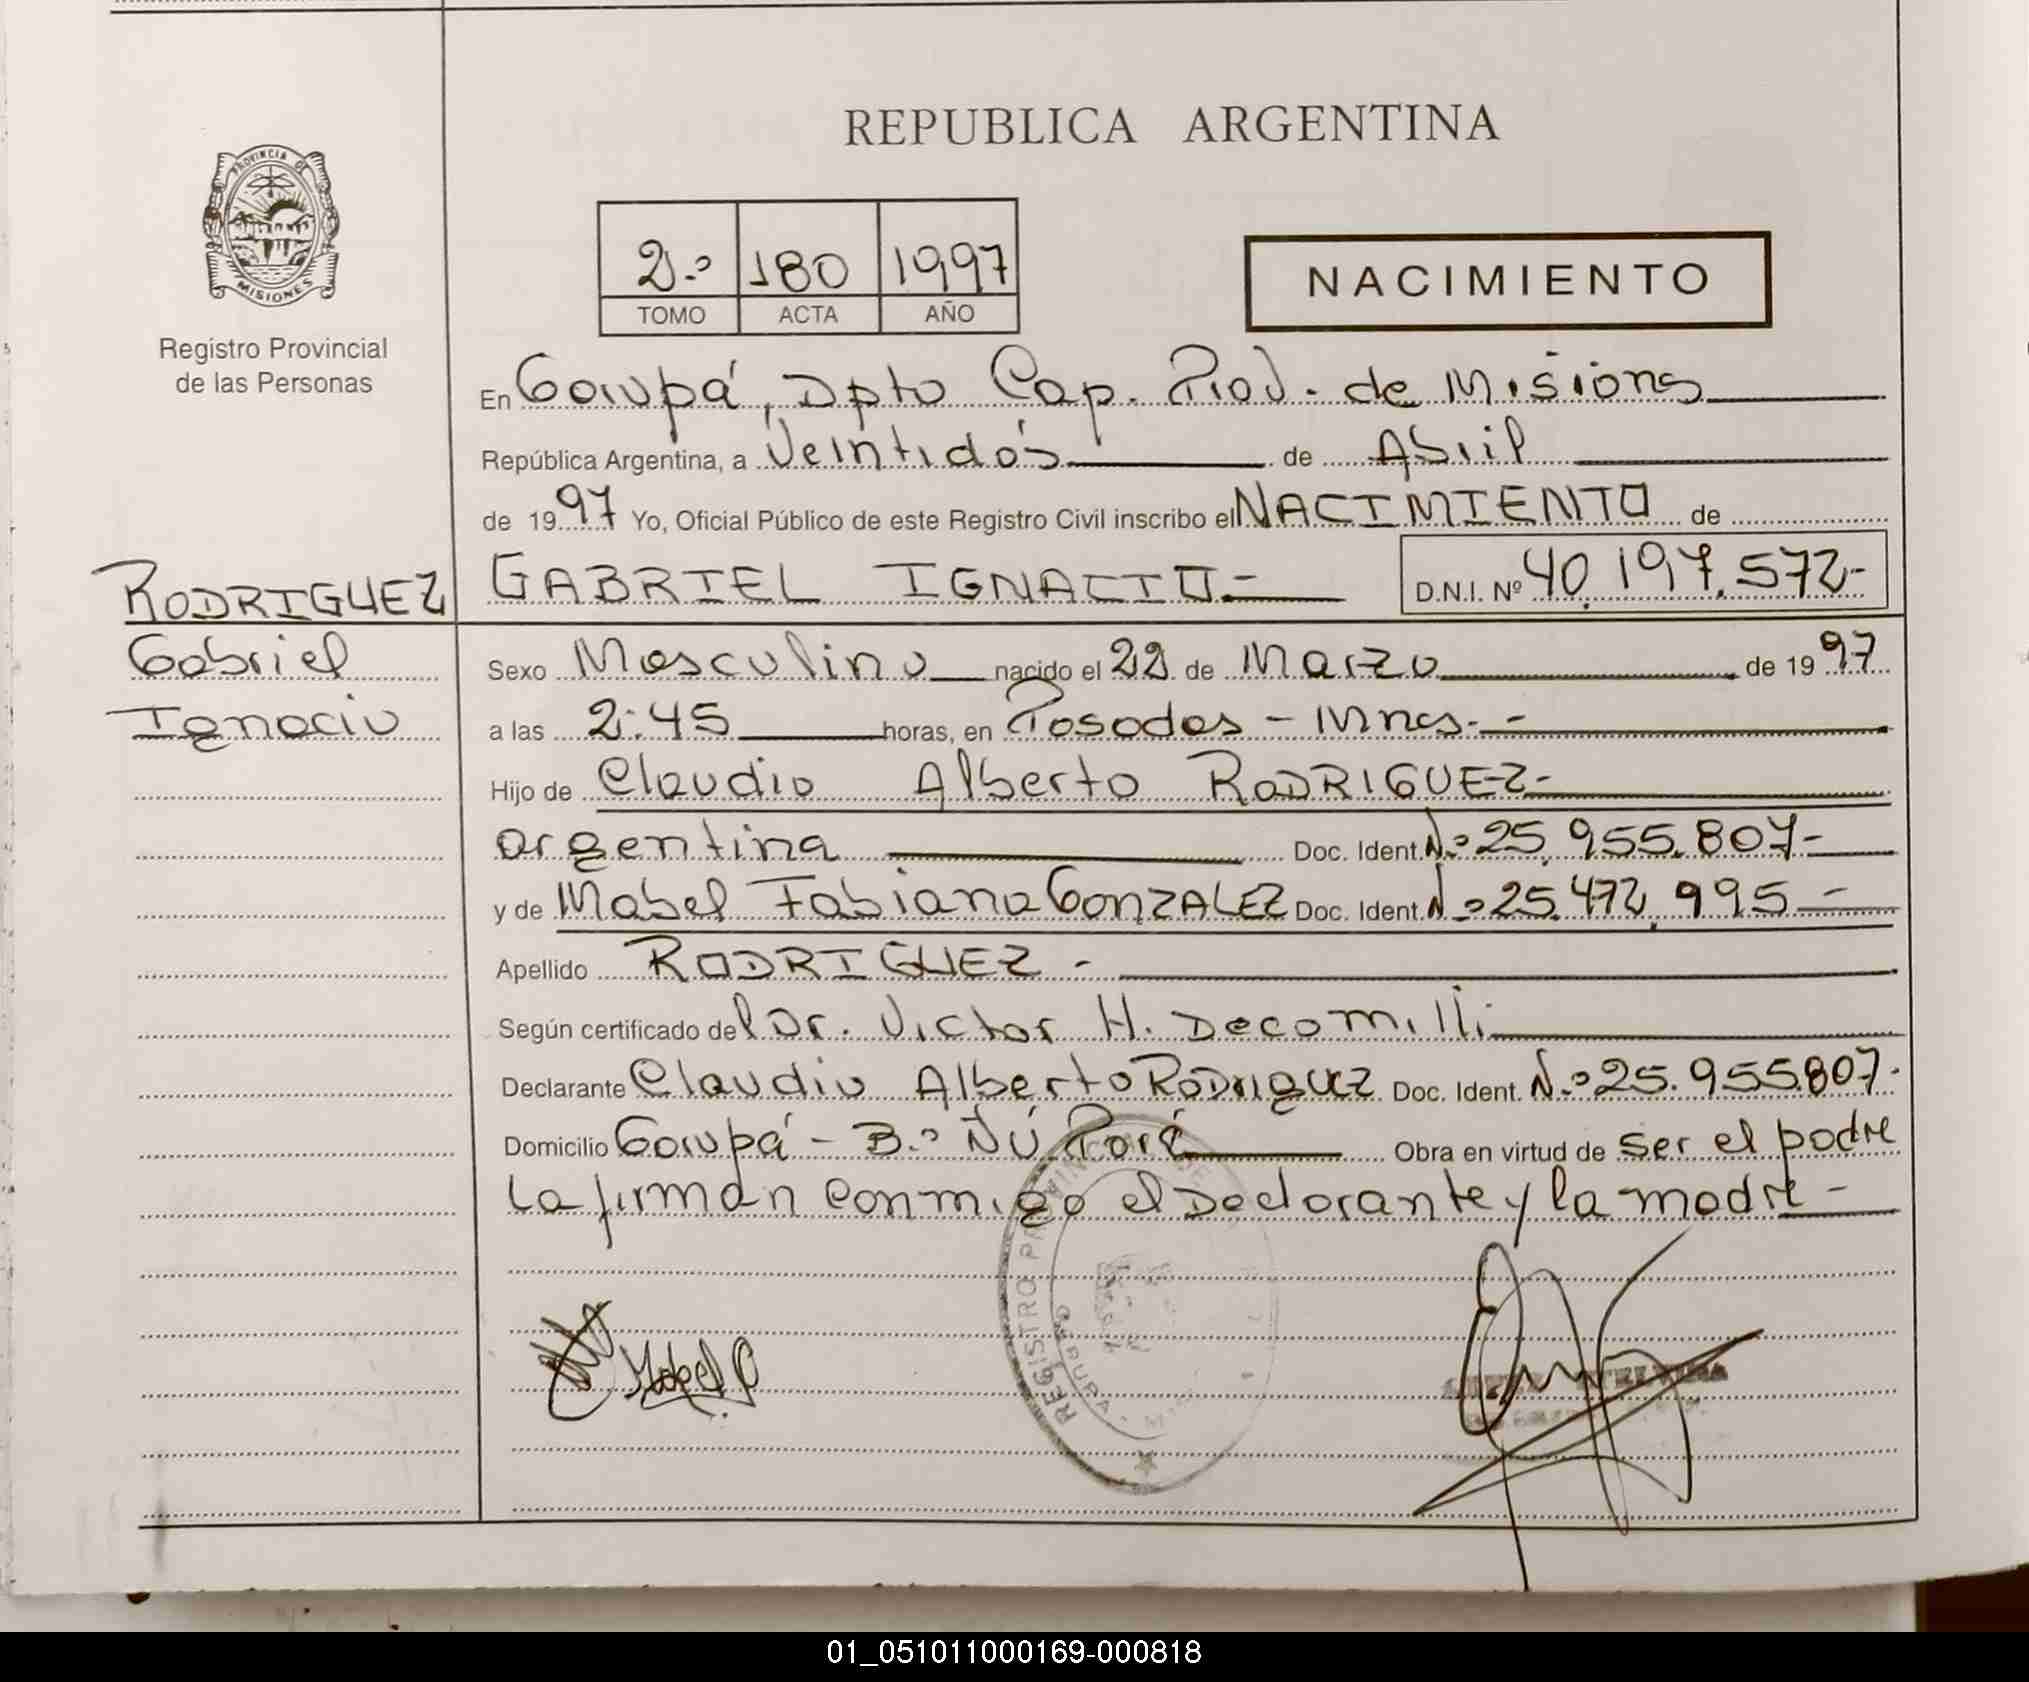 REPUBLICA ARGENTINA
PROVINCIA DE
MISIONES
Registro Provincial
de las Personas
2.º 180 1997
TOMO ACTA AÑO
NACIMIENTO
En Garupá, Dpto Cap. Prov. de Misiones
República Argentina, a Veintidós de Abril
de 1997 Yo, Oficial Público de este Registro Civil inscribo el NACIMIENTO de
RODRIGUEZ GABRIEL IGNACIO.- D.N.I. Nº 40.197.572-
Gabriel
Ignacio
Sexo Masculino nacido el 22 de Marzo de 1997
a las 2:45 horas, en Posadas - Mnes.-
Hijo de Claudio Alberto RODRIGUEZ-
argentina Doc. Ident. N.º 25.955.807-
y de Mabel Fabiana GONZALEZ Doc. Ident. N.º 25.472.995-
Apellido RODRIGUEZ -
Según certificado del Dr. Victor H. Decomilli
Declarante Claudio Alberto RODRIGUEZ Doc. Ident. N.º 25.955.807-
Domicilio Garupá - B.º Ñú Porá Obra en virtud de ser el padre
La firman conmigo el Declarante y la madre -
REGISTRO PROVINCIAL DE
GARUPA
Mabel G
01_051011000169-000818